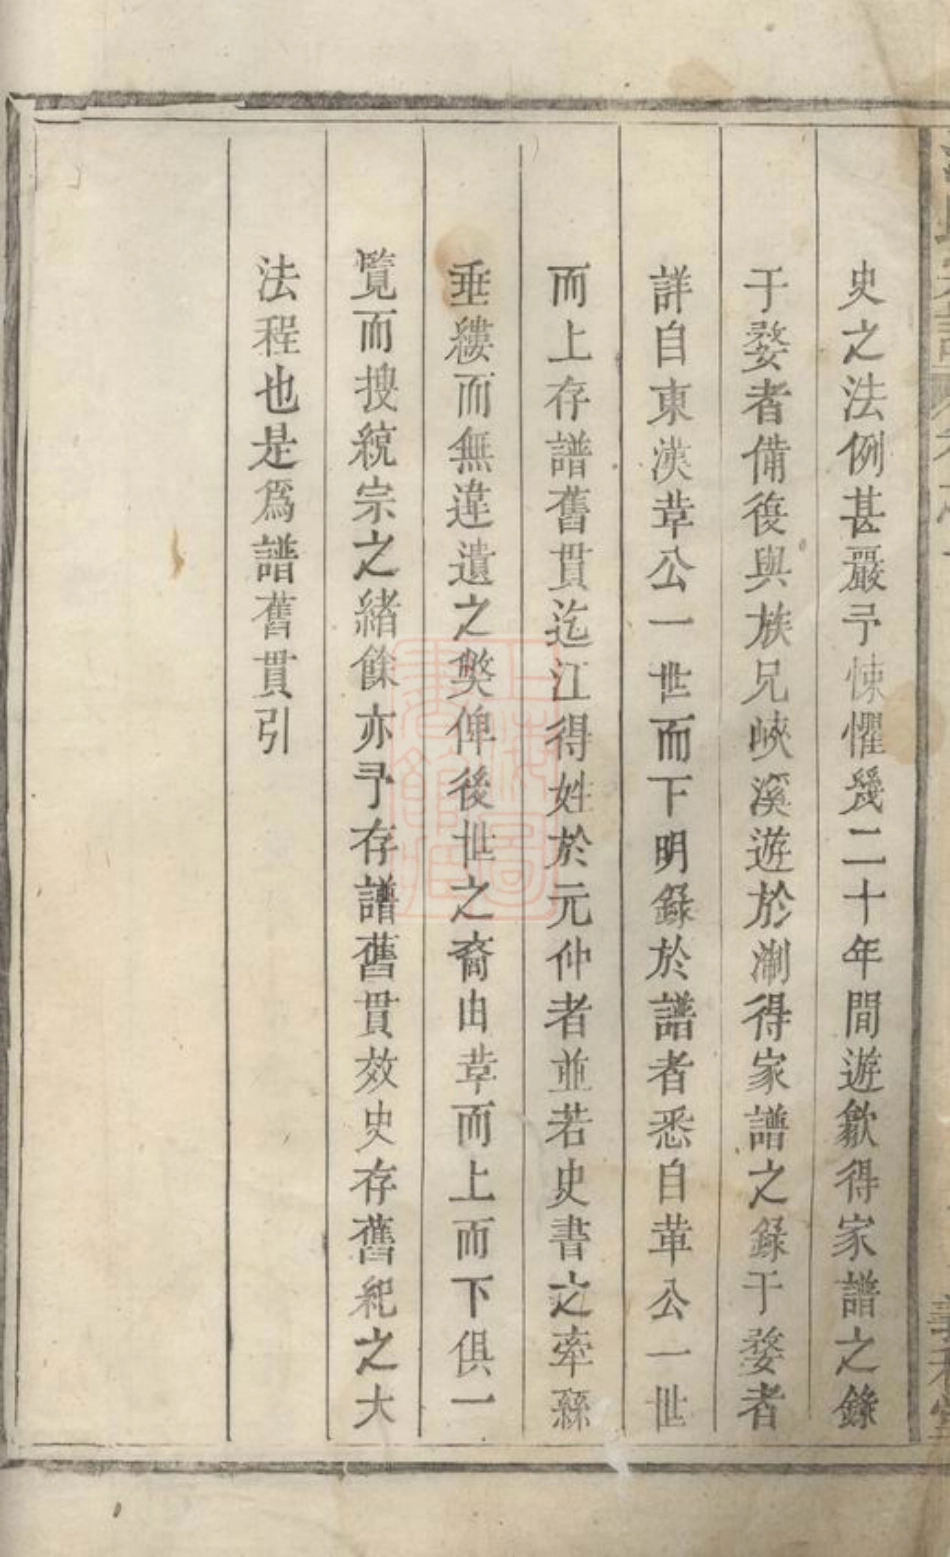 史之法例甚嚴予悚懼幾二十年間遊歙得家譜之錄
于婺者備復與族兄峽溪遊於淛得家譜之錄于婺者
詳自東漢葦公一世而下明錄於譜者悉自葦公一世
而上存譜舊貫迄江得姓於元仲者並若史書之牽繇
垂縷而無違遺之獘俾後世之裔由葦而上而下俱一
覽而搜統宗之緒餘亦予存譜舊貫效史存舊紀之大
法程也是爲譜舊貫引